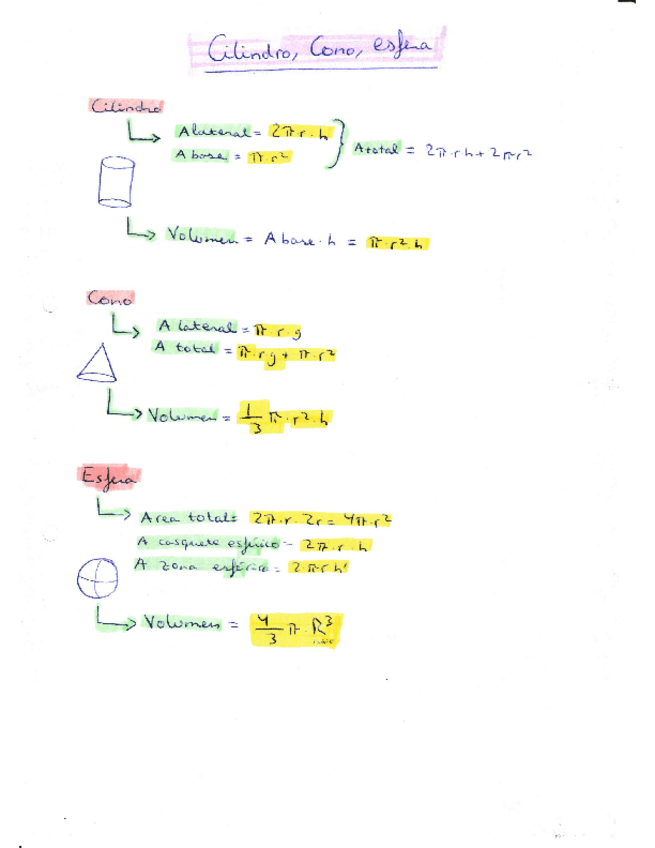 Cilindro, Cono, esfera
Cilindro
A lateral = 2π·r·h
A base = π·r²
A total = 2π·r h + 2πr²
Volumen = A base · h = π·r²·h
Cono
A lateral = π·r·g
A total = π·r g + π·r²
Volumen = 1/3 π·r²·h
Esfera
Area total = 2π·r·2r = 4π·r²
A casquete esférico = 2π·r·h
A zona esférica = 2π·r h'
Volumen = 4/3 π·R³